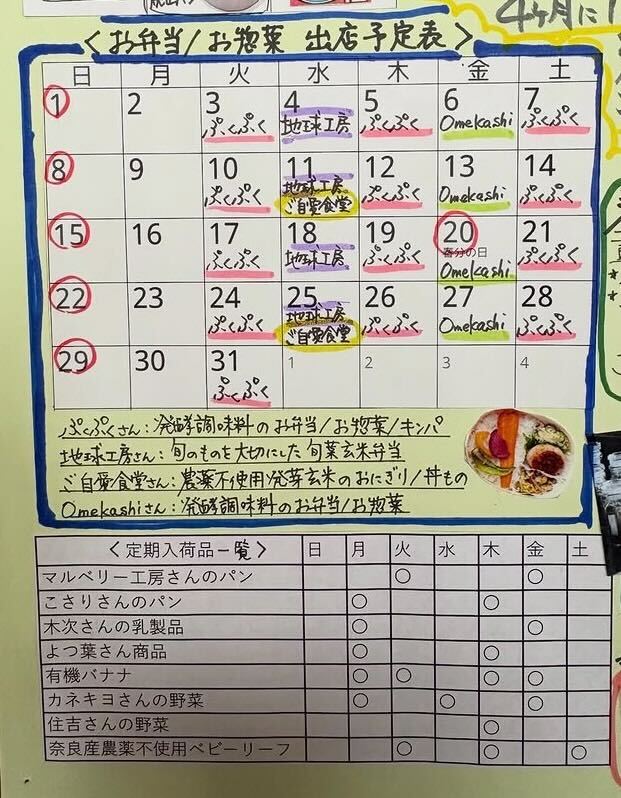 4ヶ月に
〈お弁当/お惣菜 出店予定表〉
日 月 火 水 木 金 土
1 2 3 4 5 6 7
ぷくぷく 地球工房 ぷくぷく Omekashi ぷくぷく
8 9 10 11 12 13 14
ぷくぷく 地球工房 ぷくぷく Omekashi ぷくぷく
ご自愛食堂
15 16 17 18 19 20 21
春分の日
ぷくぷく 地球工房 ぷくぷく Omekashi ぷくぷく
22 23 24 25 26 27 28
ぷくぷく 地球工房 ぷくぷく Omekashi ぷくぷく
ご自愛食堂
29 30 31 1 2 3 4
ぷくぷく
ぷくぷくさん:発酵調味料のお弁当/お惣菜/キンパ
地球工房さん:旬のものを大切にした旬菜玄米弁当
ご自愛食堂さん:農薬不使用発芽玄米のおにぎり/丼もの
Omekashiさん:発酵調味料のお弁当/お惣菜
〈定期入荷品一覧〉 日 月 火 水 木 金 土
マルベリー工房さんのパン ○ ○
こさりさんのパン ○ ○
木次さんの乳製品 ○ ○
よつ葉さん商品 ○ ○
有機バナナ ○ ○ ○ ○
カネキヨさんの野菜 ○ ○ ○
住吉さんの野菜 ○
奈良産農薬不使用ベビーリーフ ○ ○ ○